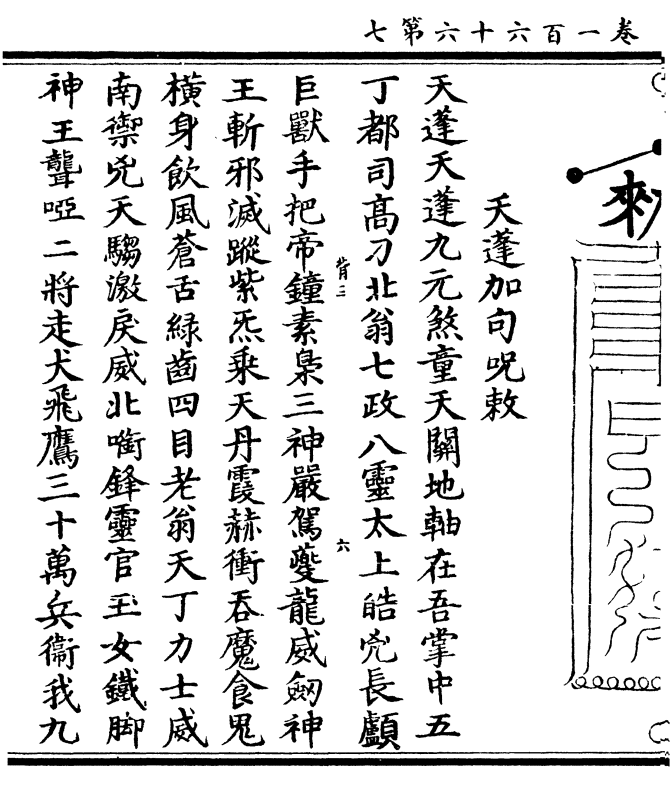 卷一百六十六第七
敕
天蓬加句呪敕
天蓬天蓬九元煞童天關地軸在吾掌中五
丁都司高刁北翁七政八靈太上皓兇長顱
巨獸手把帝鐘素梟三神嚴駕夔龍威劒神
背三 六
王斬邪滅蹤紫炁乘天丹霞赫衝吞魔食鬼
橫身飲風蒼舌綠齒四目老翁天丁力士威
南禦兇天騶激戾威北㘅鋒靈官玉女鐵脚
神王聾啞二將走犬飛鷹三十萬兵衞我九